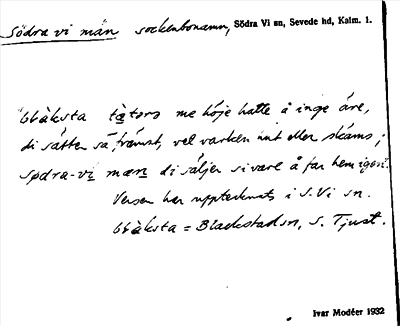 Södra vi män sockenbonamn, Södra Vi sn, Sevede hd, Kalm. l.
bbàksta tàtors me höje hatte å inge äre,
di sätter sä främst, vel varken int eller skäms;
södra-vi mæn di säljer si vare å far hem igen.
Versen har upptecknats i S. Vi sn.
bbàksta = Blackstad sn, S. Tjust.
Ivar Modéer 1932